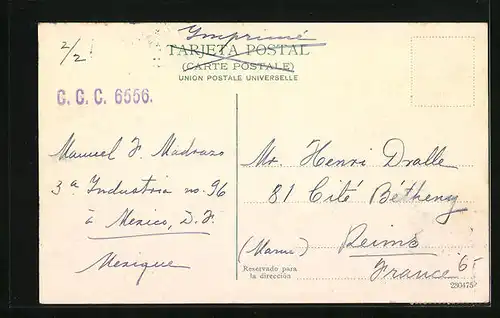 Imprimé
2/2
TARJETA POSTAL
(CARTE POSTALE)
UNION POSTALE UNIVERSELLE
C. C. C. 6556.
Manuel F. Madrazo
3ª Industria no. 96
à Mexico, D.F.
Mexique
Mr. Henri Dralle
81 Cité Bétheny
(Marne) Reims
France
Reservado para
la dirección
230475